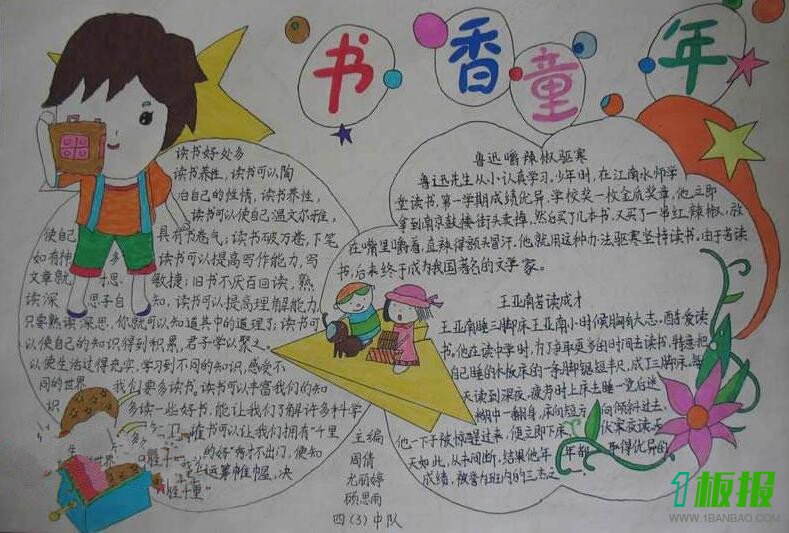 书香童年
读书好处多
读书养性，读书可以陶
冶自己的性情，读书养性，
读书可以使自己温文尔雅，
使自己 具有书卷气；读书破万卷，下笔
如有神 多 读书可以提高写作能力，写
文章就 才思 敏捷；旧书不厌百回读，熟
读深 思子自 知，读书可以提高理解能力，
只要熟读深思，你就可以知道其中的道理了；读书可
以使自己的知识得到积累，君子学以聚之。
以使生活过得充实，学习到不同的知识，感受不
同的世界 我们要多读书。读书可以丰富我们的知
识 多读一些好书，能让我们了解许多科学
读书可以让我们拥有“千里
的好 秀才不出门，便知
运筹帷幄，决
胜千里”
主编
周倩
尤丽婷
顾思雨
四(3)中队
鲁迅嚼辣椒驱寒
鲁迅先生从小认真学习。少年时，在江南水师学
堂读书，第一学期成绩优异，学校奖一枚金质奖章。他立即
拿到南京鼓楼街头卖掉，然后买了几本书，又买了一串红辣椒，放
在嘴里嚼着，直辣得额头冒汗。他就用这种办法驱寒坚持读书。由于苦读
书，后来终于成为我国著名的文学家。
王亚南苦读成才
王亚南睡三脚床王亚南小时候胸有大志，酷爱读
书。他在读中学时，为了争取更多的时间去读书，特意把
自己睡的木板床的一条脚锯短半尺，成了三脚床。每
天读到深夜，疲劳时上床去睡一觉后迷
糊中一翻身，床向短方 向倾斜过去，
他一下子被惊醒过来，便立即下床 伏案夜读。
天如此，从未间断。结果他年 年都 取得优异的
成绩，被誉为班内的三杰之一。
1板报
WWW.1BANBAO.COM